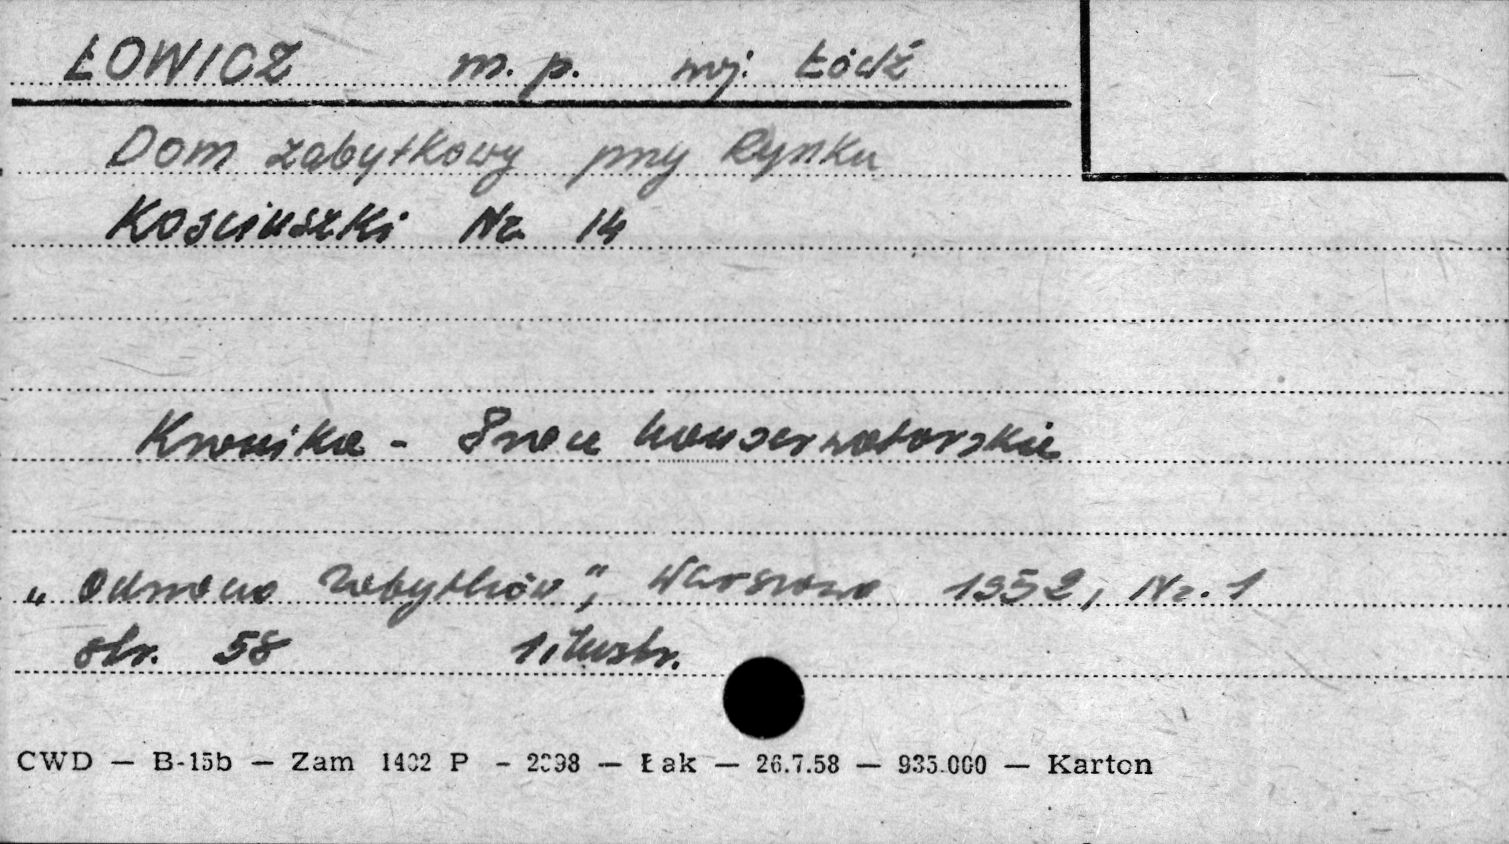 ŁOWICZ m. p. woj. Łódź
Dom zabytkowy przy Rynku
Kosciuszki Nr 14
Kronika - Prace konserwatorskie
„Ochrona Zabytków”, Warszawa 1952, Nr. 1
str. 58 1 ilustr.
CWD — B-15b — Zam 1402 P - 2398 — Łak — 26.7.58 — 935.000 — Karton